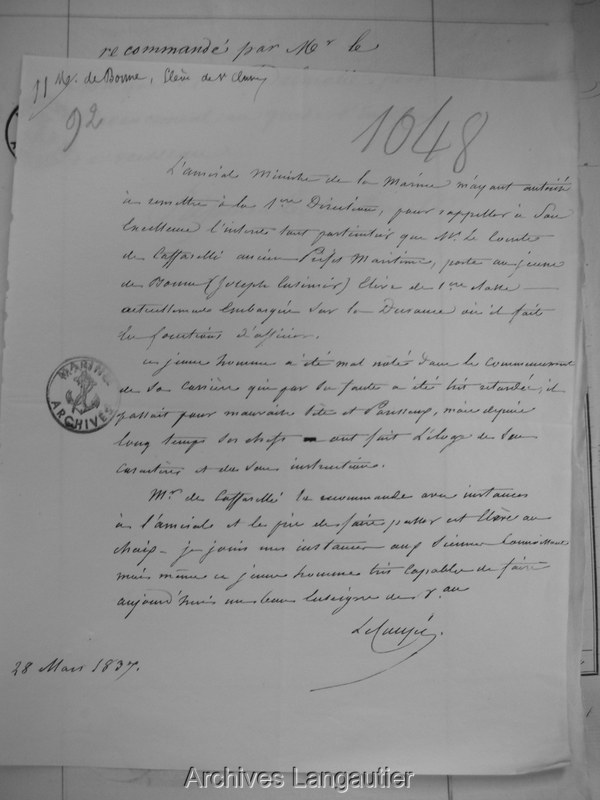 recommandé par Mr le
11 Mr. de Bonne, Elève de 1e Classe
92
1048
L'amiral Ministre de la Marine m'ayant autorisé
à remettre à la 1ère Direction, pour rappeller à Son
Excellence l'interet tout particulier que Mr. Le Comte
de Caffarelli ancien Préfet Maritime, porte au jeune
de Bonne (Joseph Casimir) Elève de 1ère classe
actuellement Embarqué sur la Durance où il fait
les fonctions d'officier.
Ce jeune homme a été mal noté dans le Commencement
de sa carrière qui par sa faute a été très retardée; il
passait pour mauvaise tête et Paresseux, mais depuis
long temps ses chefs ont fait l'éloge de son
caractère et de son instruction.
Mr. de Caffarelli le recommande avec instances
à l'amiral et le prie de faire passer cet Elève au
choix - je joins mes instances aux siennes Connaissant
moi même ce jeune homme très capable de faire
aujourd'hui un bon Enseigne de Vau
28 Mars 1837.
MARINE
ARCHIVES
Archives Langautier